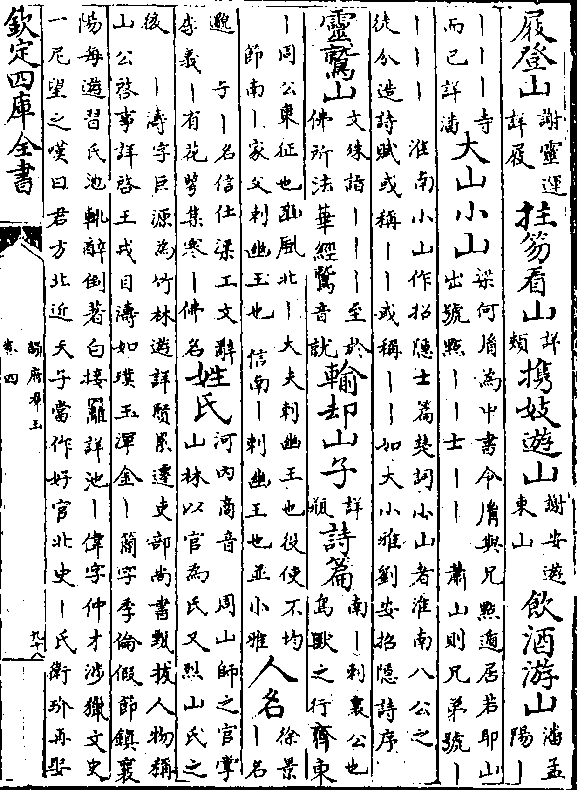 屐登山 謝靈運詳屐 拄笏看山 詳類 携妓遊山 謝安遊東山 飲酒游山 潘孟陽丨
丨丨丨寺而已詳潘 大山小山 梁何胤為中書令胤與兄㸃遁居若耶山出號㸃丨丨士丨丨 肅山則兄弟號丨
丨丨丨 淮南小山作招隐士篇楚詞小山者淮南八公之
徒分造詩賦或稱丨丨或稱丨丨如大小雅劉安招隐詩序
靈鷲山 文殊詣丨丨丨至於佛所法華經鷲音就 輸却山子 詳瓶 詩篇 南丨刺襄公也鳥獸之行齊東
丨周公東征也豳風北丨大夫刺幽王也役使不均節南丨家父刺幽王也 信南丨刺幽王也並小雅 人名 徐景丨名
子丨名信仕梁工文辭李義丨有花萼集寒丨佛名 姓氏 河内商音 周山師之官掌山林以官為氏又烈山氏之
後 丨濤字巨源為竹林遊詳賢累遷吏部尚書甄拔人物稱
山公啓事詳啓王戎目濤如璞玉渾金丨簡字季倫假節鎮襄
陽每遊習氏池輒醉倒著白接䍦詳池丨偉字仲才涉獵文史
一尼望之嘆曰君方北近天子當作好官北史丨氏衛玠再娶
欽定四庫全書
韻府羣玉
卷四
九十八